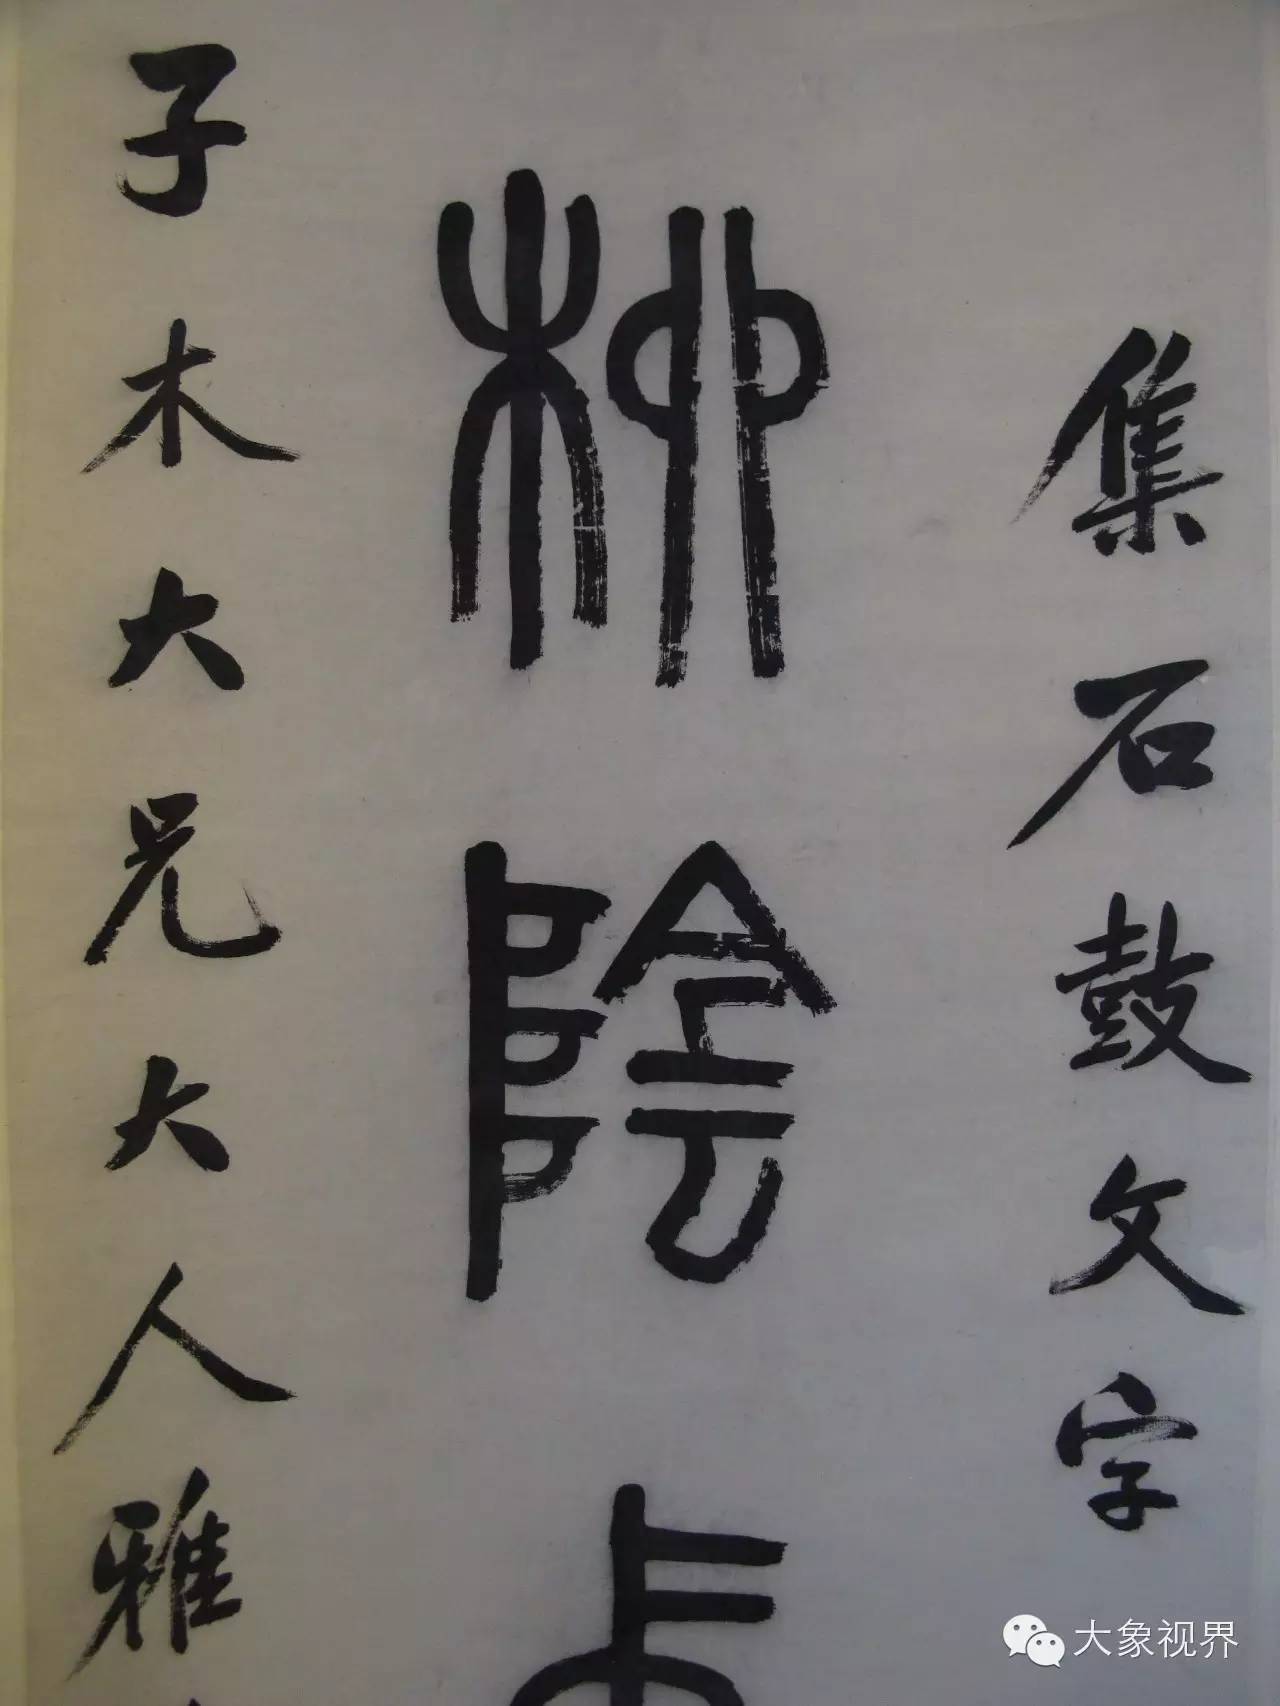 集石鼓文字
柳陰
子木大兄大人雅
大象视界